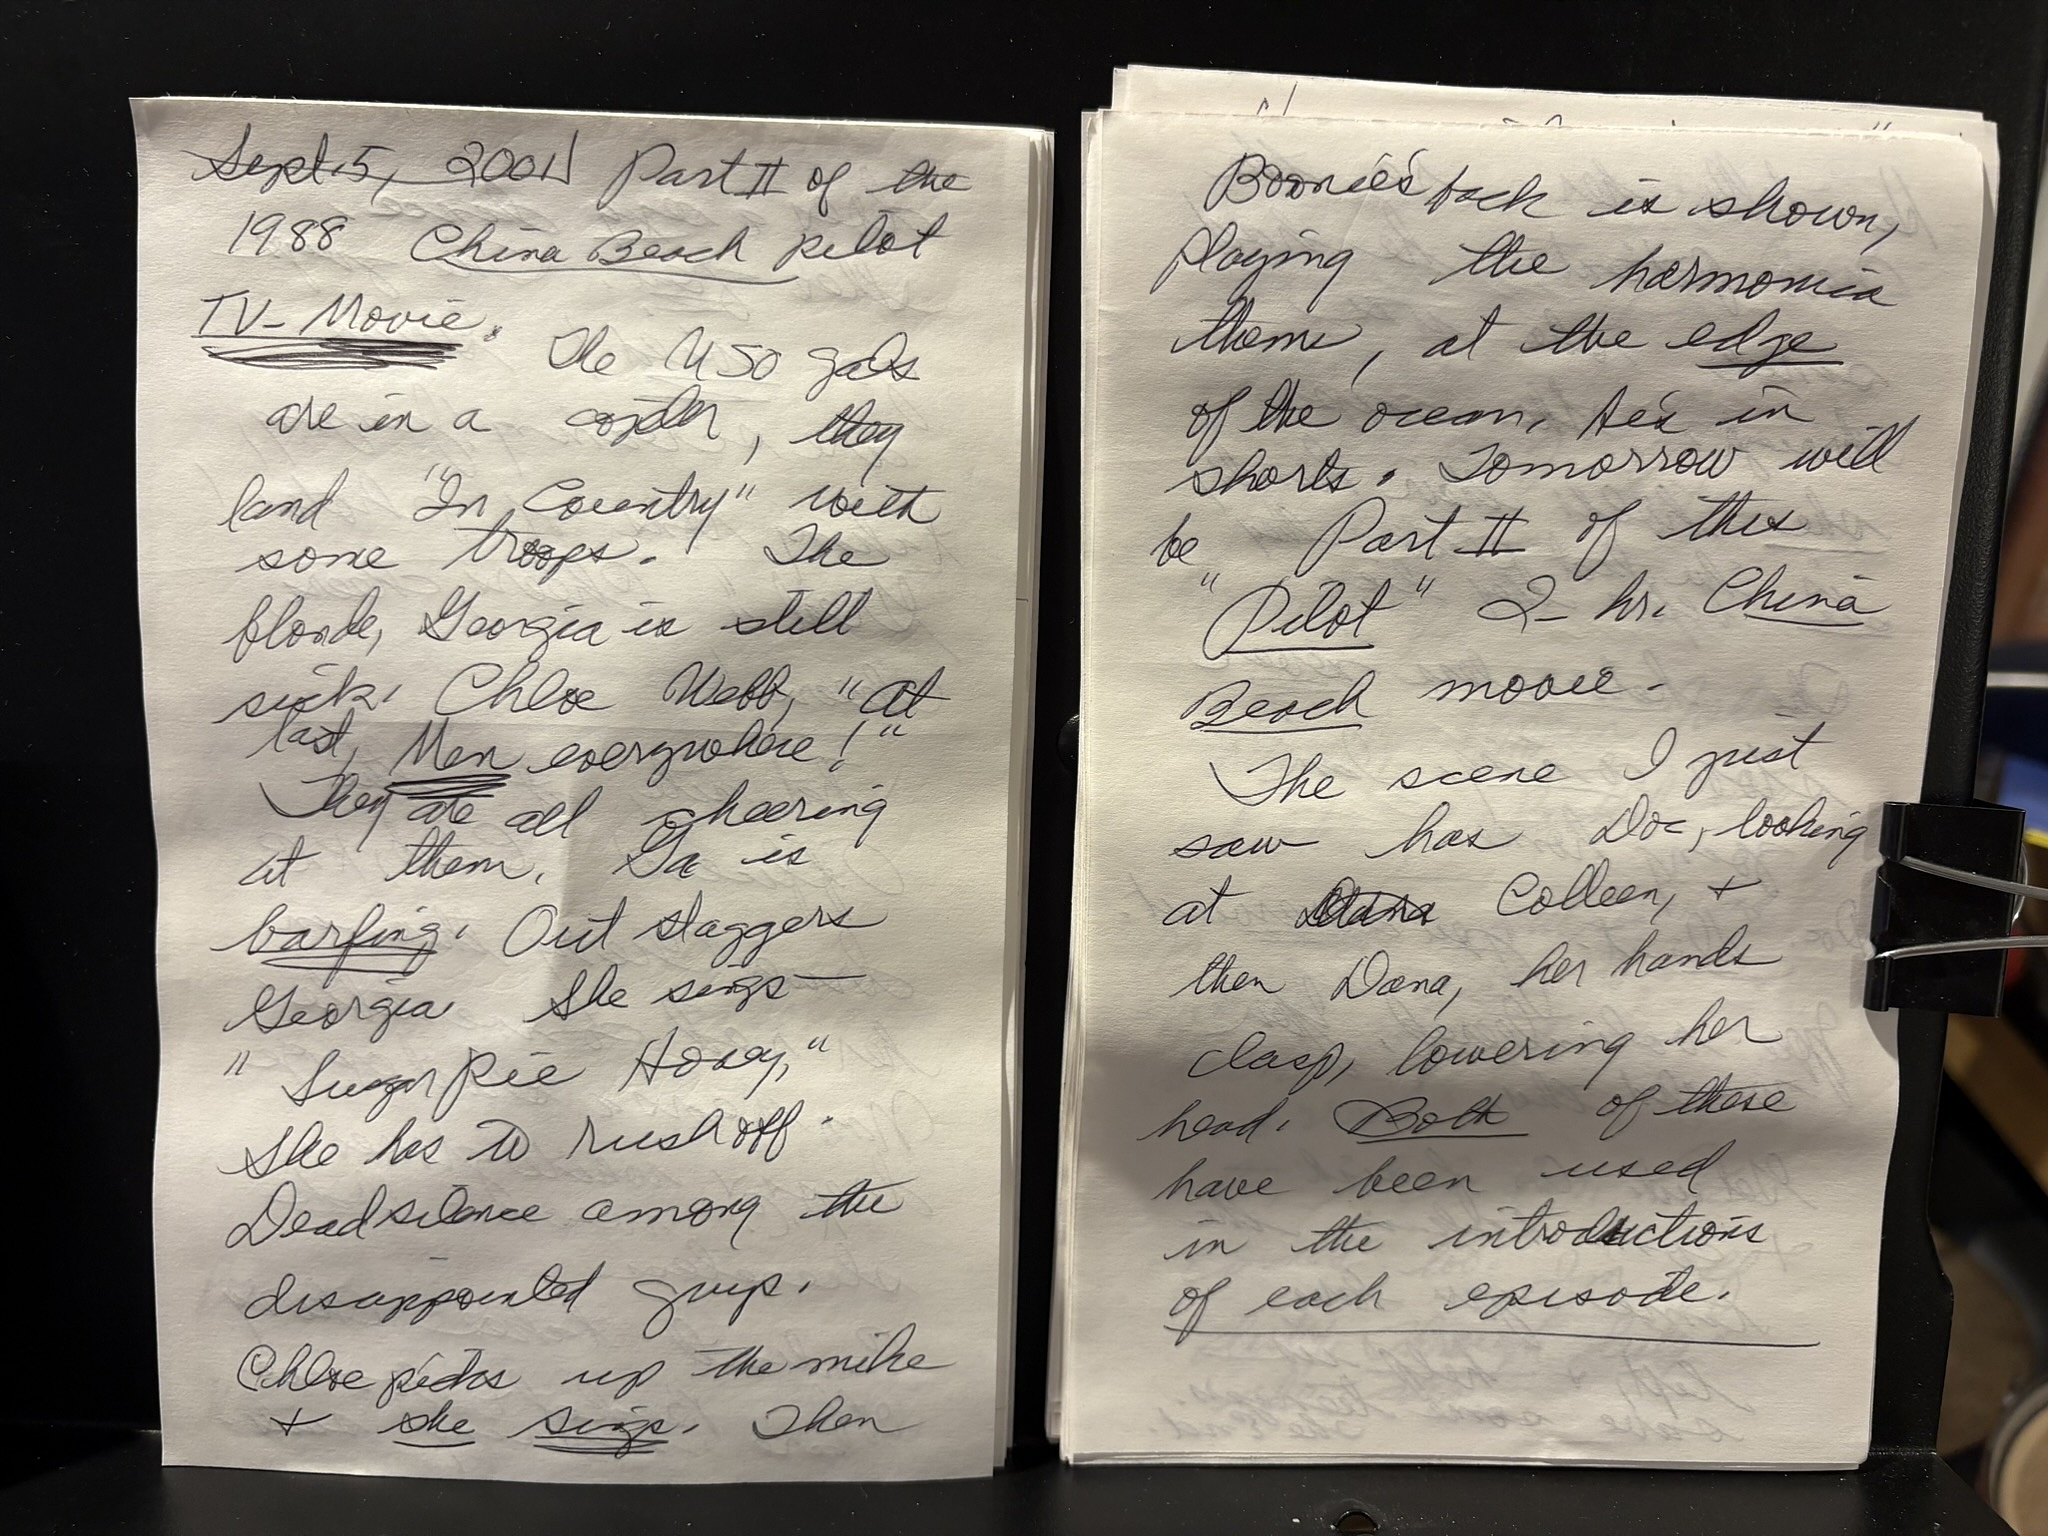 Sept. 5, 2001 Part II of the
1988 China Beach pilot
TV-Movie. The USO gals
are in a copter, they
land "In Country" with
some troops. The
blonde, Georgia is still
sick. Chloe Webb, "At
last, Men everywhere!"
They are all cheering
at them. Ga is
barfing. Out staggers
Georgia She sings—
"Sugar Pie Honey,"
She has to rush off.
Dead silence among the
disappointed guys.
Chloe picks up the mike
+ she sings. Then
Boonie's back is shown,
playing the harmonica
theme, at the edge
of the ocean, he's in
shorts. Tomorrow will
be Part II of this
"Pilot" 2-hr. China
Beach movie.
The scene I just
saw has Doc, looking
at Colleen, +
then Dana, her hands
clasp, lowering her
head. Both of these
have been used
in the introductions
of each episode.